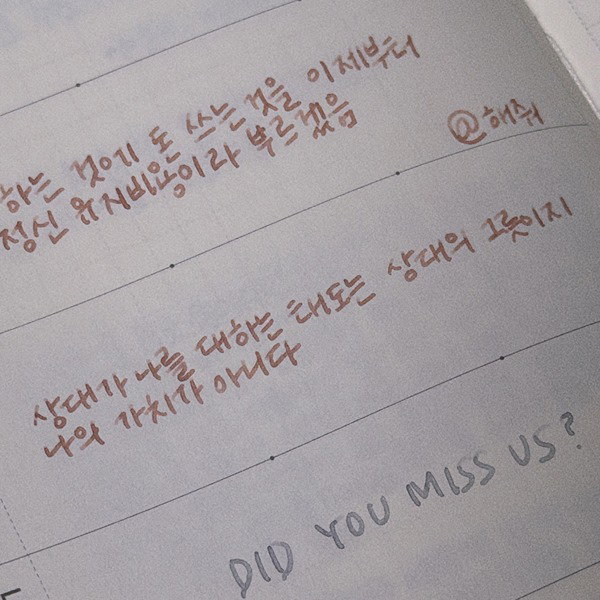 하는 것에 돈 쓰는 것을 이제부터
정신 유지비용이라 부르겠음
@해줘
상대가 나를 대하는 태도는 상대의 그릇이지
나의 가치가 아니다
DID YOU MISS US?